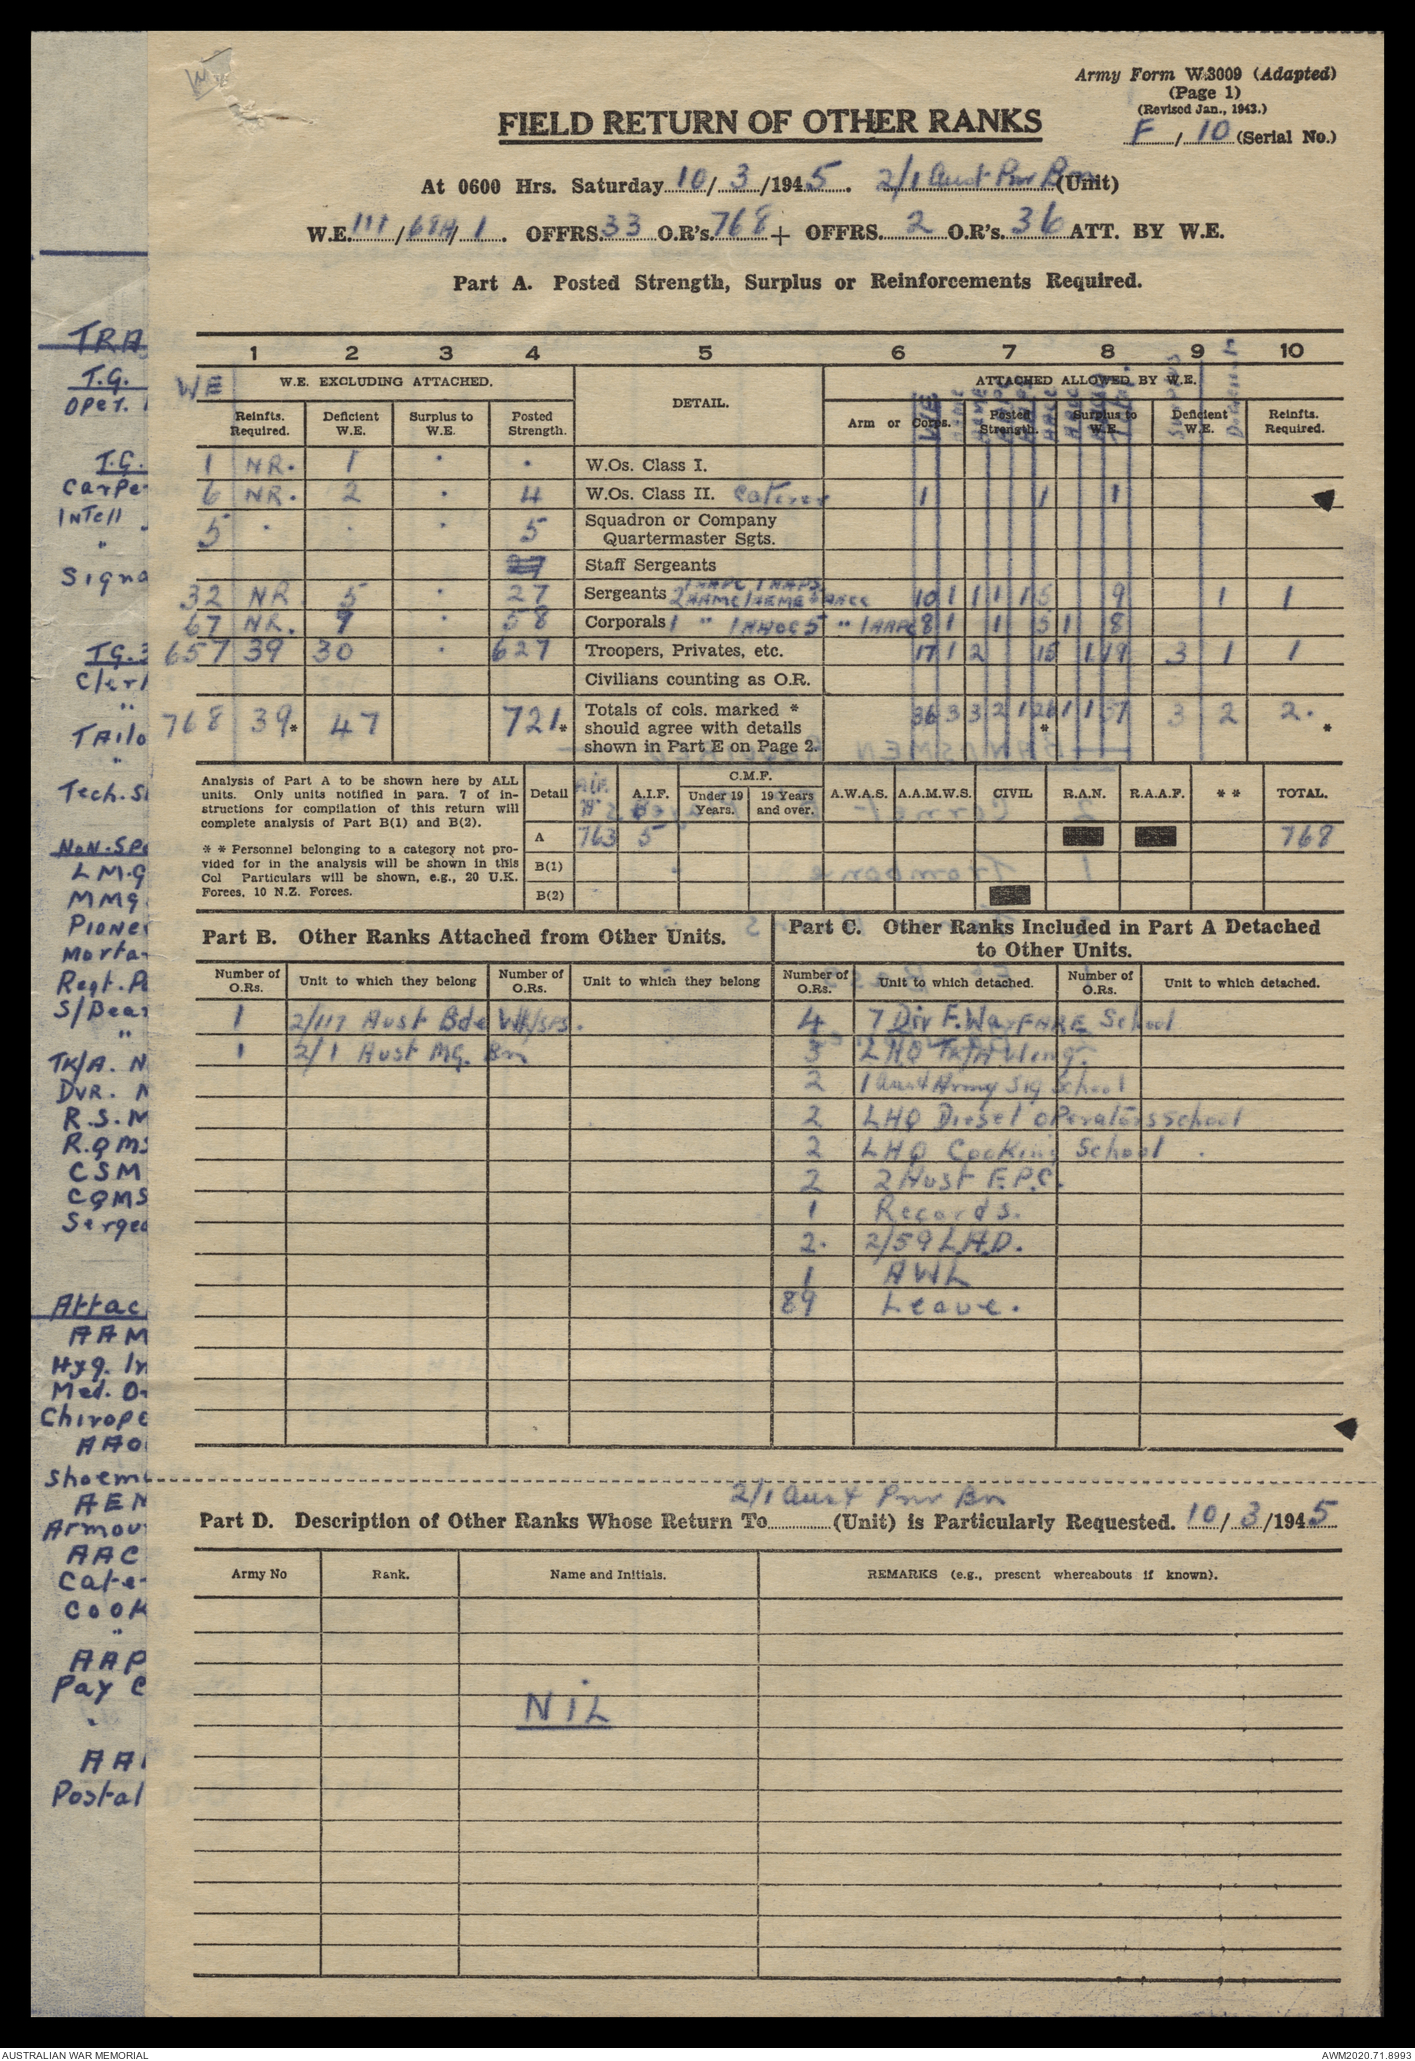 Army Form W.3009 (Adapted)
(Page 1)
(Revised Jan., 1943.)
F / 10 (Serial No.)
FIELD RETURN OF OTHER RANKS
At 0600 Hrs. Saturday 10/3/1945. 2/1 Aust Pnr Bn (Unit)
W.E. 111/68A/1. OFFRS. 33 O.R's. 768 + OFFRS. 2 O.R's. 36 ATT. BY W.E.
Part A. Posted Strength, Surplus or Reinforcements Required.
1 2 3 4 5 6 7 8 9 10
WE W.E. EXCLUDING ATTACHED. DETAIL. ATTACHED ALLOWED BY W.E.
Reinfts. Required. Deficient W.E. Surplus to W.E. Posted Strength. Arm or Corps. Posted Strength. Surplus to W.E. Deficient W.E. Reinfts. Required.
1 NR. 1 . . W.Os. Class I.
6 NR. 2 . 4 W.Os. Class II. Caterer 1 1 1
5 . . . 5 Squadron or Company Quartermaster Sgts.
27 Staff Sergeants
32 NR 5 . 27 Sergeants 10 1 1 1 1 5 9 1 1
67 NR. 9 . 58 Corporals 8 1 1 5 1 8
657 39 30 . 627 Troopers, Privates, etc. 17 1 2 15 1 19 3 1 1
Civilians counting as O.R.
768 39* 47 721* Totals of cols. marked * should agree with details shown in Part E on Page 2. 36 3 3 2 1 26 1 1 37 3 2 2. *
Analysis of Part A to be shown here by ALL
units. Only units notified in para. 7 of in-
structions for compilation of this return will
complete analysis of Part B(1) and B(2).
* * Personnel belonging to a category not pro-
vided for in the analysis will be shown in this
Col Particulars will be shown, e.g., 20 U.K.
Forces, 10 N.Z. Forces.
Detail A.I.F. C.M.F. Under 19 Years. 19 Years and over. A.W.A.S. A.A.M.W.S. CIVIL R.A.N. R.A.A.F. * * TOTAL.
A 763 5 768
B(1)
B(2)
Part B. Other Ranks Attached from Other Units.
Number of O.Rs. Unit to which they belong Number of O.Rs. Unit to which they belong
1 2/117 Aust Bde
1 2/1 Aust MG. Bn
Part C. Other Ranks Included in Part A Detached to Other Units.
Number of O.Rs. Unit to which detached. Number of O.Rs. Unit to which detached.
4 7 Div F. Wayfare School
3 LHQ TK/A Wing.
2 1 Aust Army Sig School
2 LHQ Diesel Operators School
2 LHQ Cooking School
2 2 Aust F.P.C.
1 Records.
2. 2/59 L.A.D.
1 AWL
89 Leave.
2/1 Aust Pnr Bn
Part D. Description of Other Ranks Whose Return To (Unit) is Particularly Requested. 10/3/1945
Army No Rank. Name and Initials. REMARKS (e.g., present whereabouts if known).
NIL
TRA
T.G.
Oper.
T.G.
Carpe
Intell
"
Signa
T.G.
Cler
"
Tailo
"
Tech. S
Non-Spe
L.M.G
MMG
Pionee
Morta
Regt. P
S/Bear
"
TK/A. N
DVR. N
R.S.M
R.Q.MS
CSM
CQMS
Sergea
Attac
AAM
Hyg. In
Med. O
Chirope
AAO
Shoem
AEM
Armou
AAC
Cate
Cook
"
AAP
Pay C
"
AA
Postal
AUSTRALIAN WAR MEMORIAL
AWM2020.71.8993